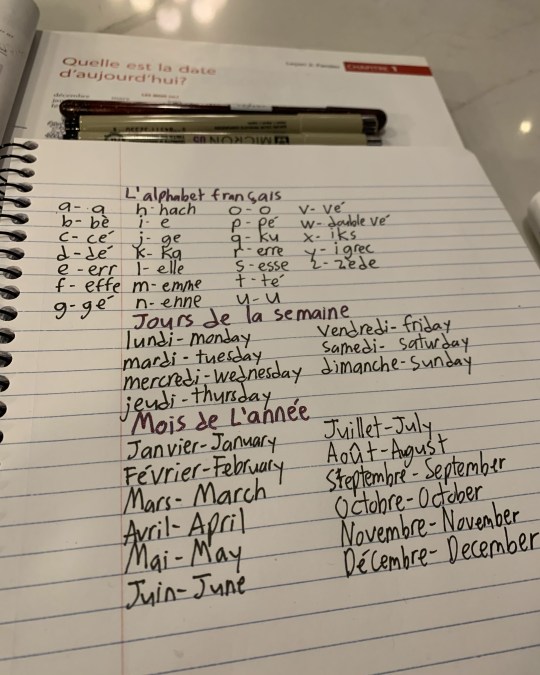 Quelle est la date
d'aujourd'hui?
CHAPITRE 1
MICRON 05
L'alphabet français
a- a h- hach o- o v- vé
b- bè i- é p- pé w- double vé
c- cé j- ge q- ku x- iks
d- dé k- ka r- erre y- igrec
e- err l- elle s- esse z- zède
f- effe m- emme t- té
g- gé n- enne u- u
Jours de la semaine
lundi- monday vendredi- friday
mardi- tuesday samedi- saturday
mercredi- wednesday dimanche- sunday
jeudi- thursday
Mois de L'année
Janvier- January Juillet- July
Février- February Août- August
Mars- March Steptembre- September
Avril- April Octobre- October
Mai- May Novembre- November
Juin- June Décembre- December